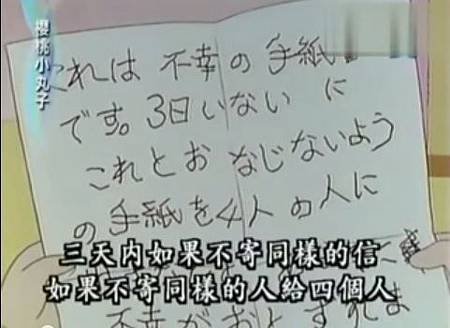 櫻桃小丸子
これは 不幸の手紙
です。3日いない に
これとお なじないよう
の手紙を4人の人に
三天內如果不寄同樣的信
如果不寄同樣的人給四個人
不幸がおとずれま